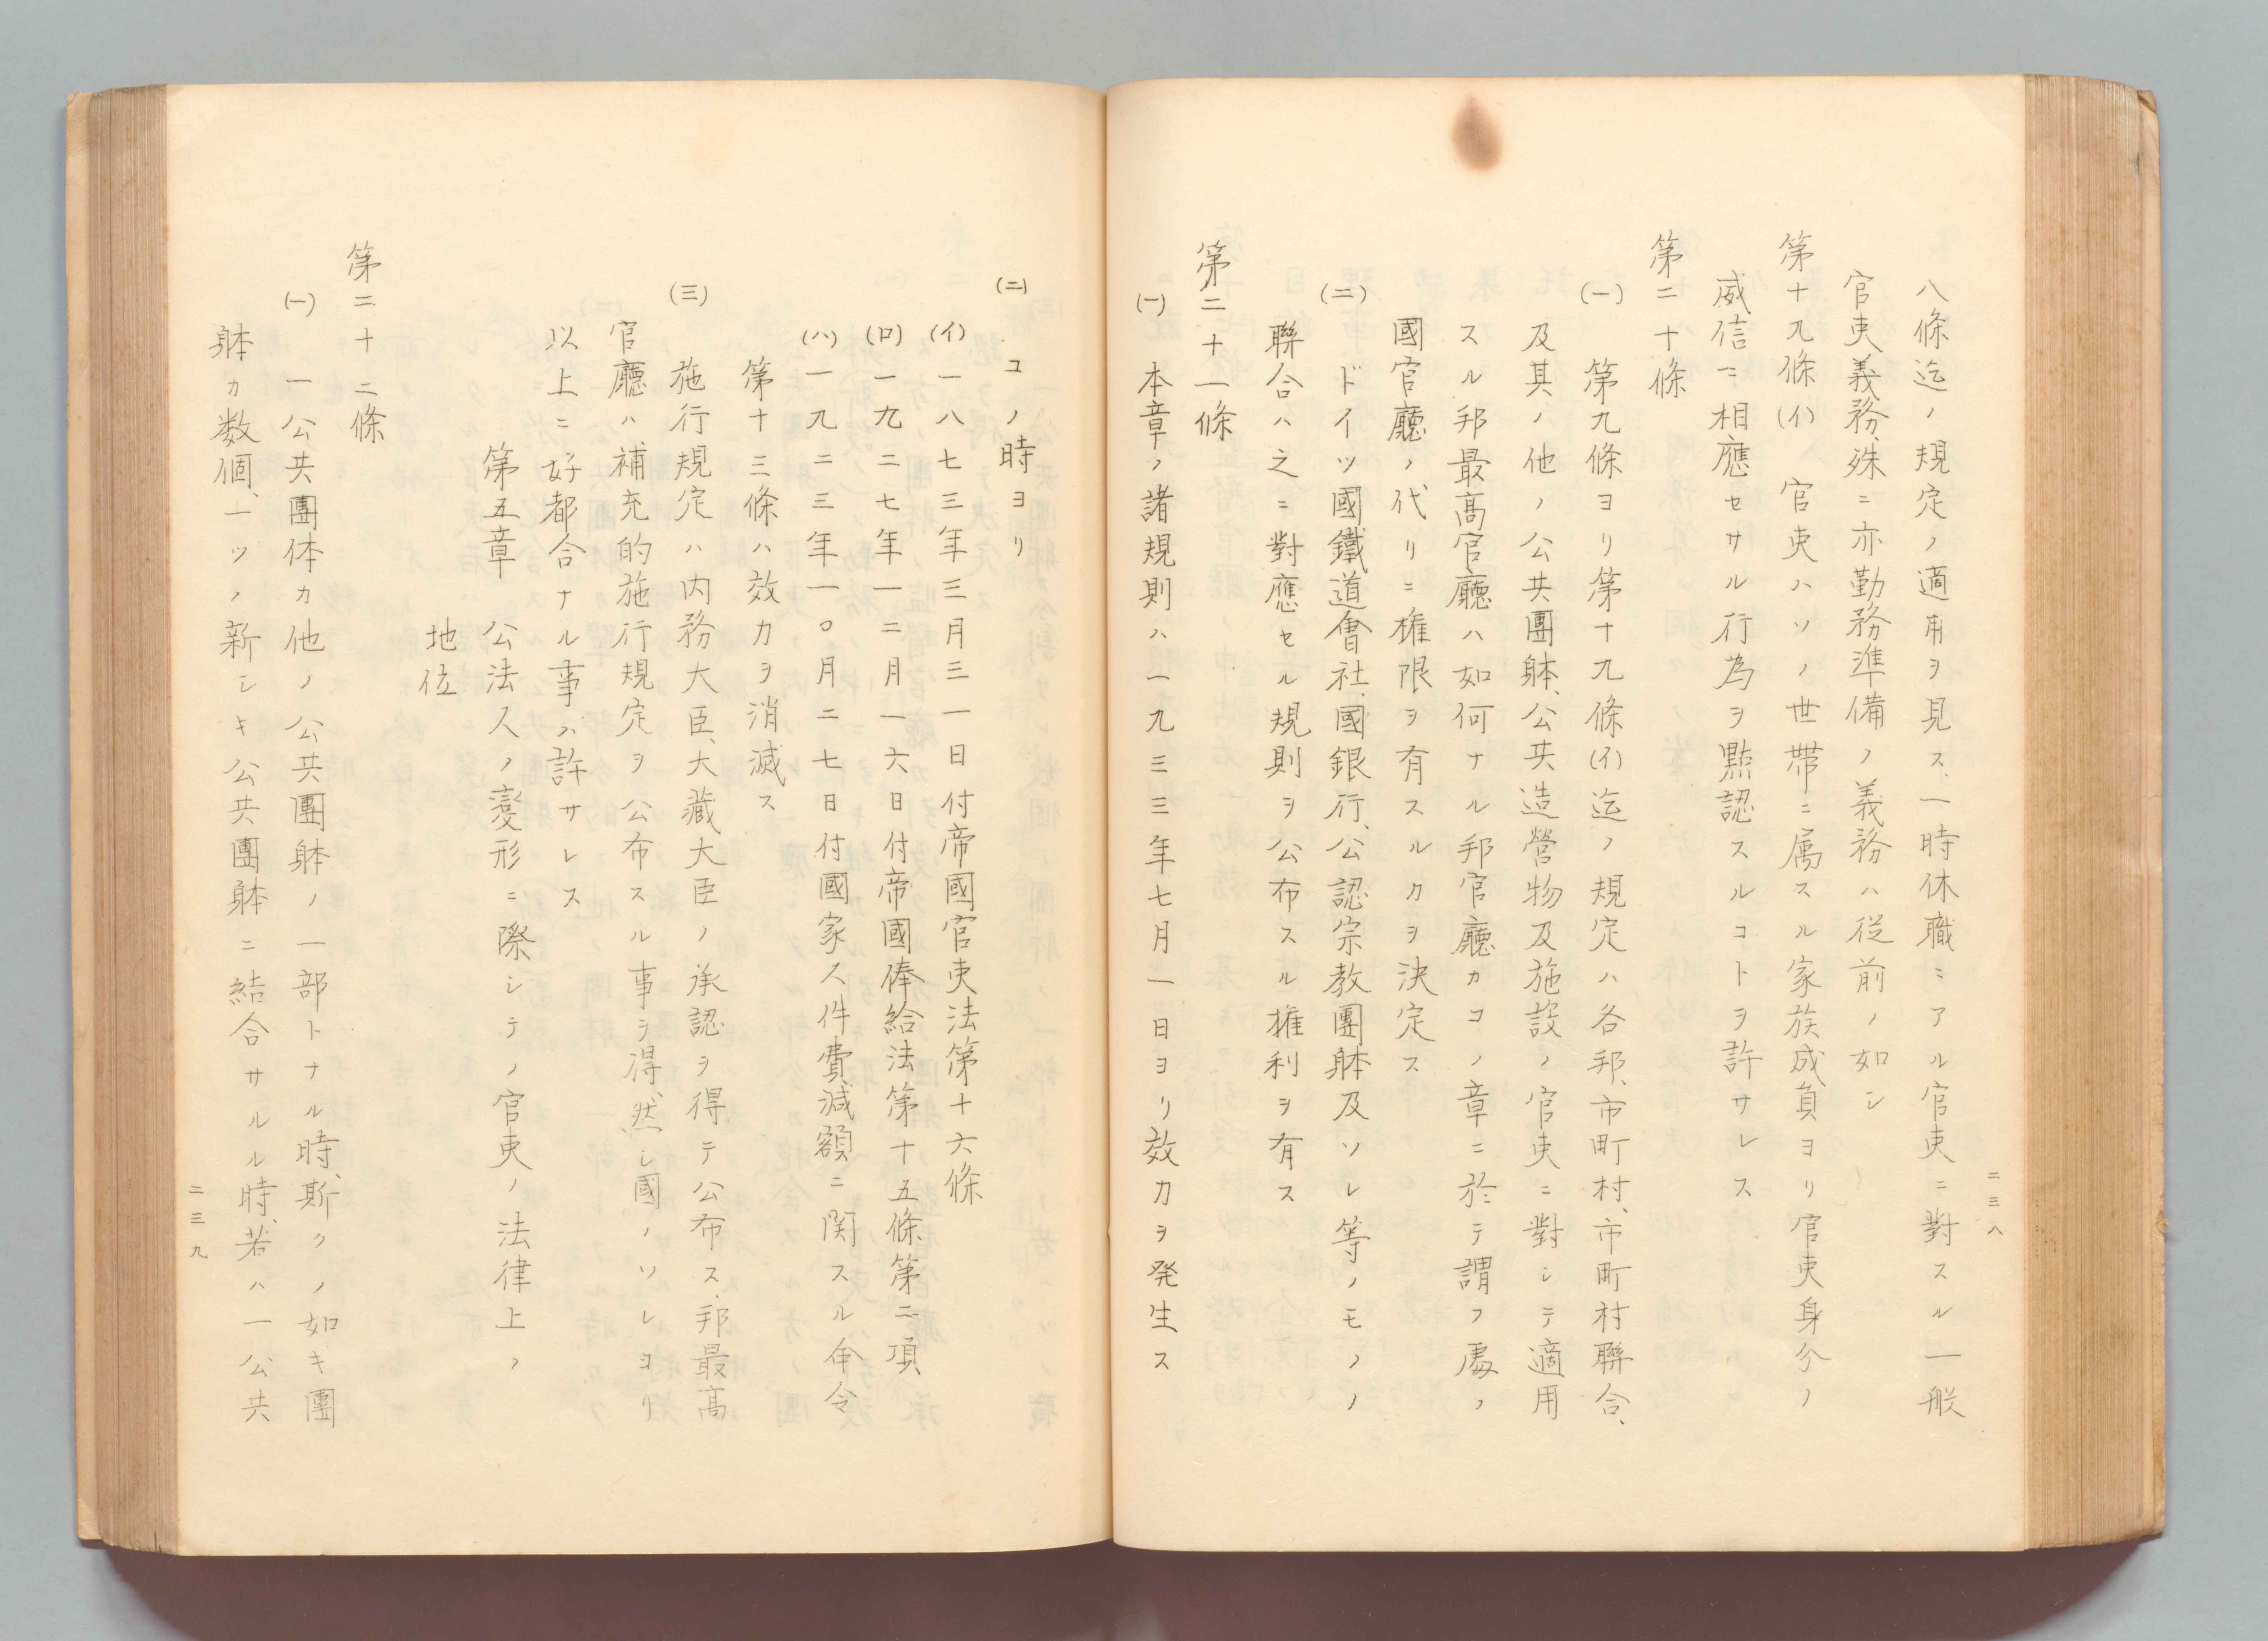 二三八
八條迄ノ規定ノ適用ヲ見ス、一時休職ニアル官吏ニ對スル一般
官吏義務、殊ニ亦勤務準備ノ義務ハ従前ノ如シ
第十九條(イ)　官吏ハソノ世帯ニ属スル家族成員ヨリ官吏身分ノ
威信ニ相應セサル行為ヲ黙認スルコトヲ許サレス
第二十條
(一)　第九條ヨリ第十九條(イ)迄ノ規定ハ各邦、市町村、市町村聯合、
及其ノ他ノ公共團躰、公共造營物及施設ノ官吏ニ對シテ適用
スル邦最高官廳ハ如何ナル邦官廳カコノ章ニ於テ謂フ處ノ
國官廳ノ代リニ権限ヲ有スルカヲ決定ス
(二)　ドイツ國鐵道會社、國銀行、公認宗教團躰及ソレ等ノモノノ
聯合ハ之ニ對應セル規則ヲ公布スル権利ヲ有ス
第二十一條
(一)　本章ノ諸規則ハ一九三三年七月一日ヨリ效力ヲ発生ス
(二)　コノ時ヨリ
(イ)一八七三年三月三一日付帝國官吏法第十六條
(ロ)一九二七年一二月一六日付帝國俸給法第十五條第二項
(ハ)一九二三年一〇月二七日付國家人件費減額ニ関スル命令
第十三條ハ效力ヲ消滅ス
(三)　施行規定ハ内務大臣、大藏大臣ノ承認ヲ得テ公布ス、邦最高
官廳ハ補充的施行規定ヲ公布スル事ヲ得、然シ國ノソレヨリ
以上ニ好都合ナル事ハ許サレス
第五章　公法人ノ變形ニ際シテノ官吏ノ法律上ノ
地位
第二十二條
(一)　一公共團体カ他ノ公共團躰ノ一部トナル時、斯クノ如キ團
躰カ数個、一ツノ新シキ公共團躰ニ結合サルル時、若ハ一公共
二三九